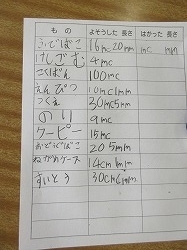 もの よそうした 長さ はかった 長さ
ふでばこ 16mc20mm mc mm
けしごむ 4mc
こくばん 100mc
えんぴつ 10mc1mm
つくえ 30mc5mm
のり 9mc
クーピー 15mc
おどうぐばこ 20 5mm
ねがねケース 14cm 1mm
すいとう 30cm 2mm